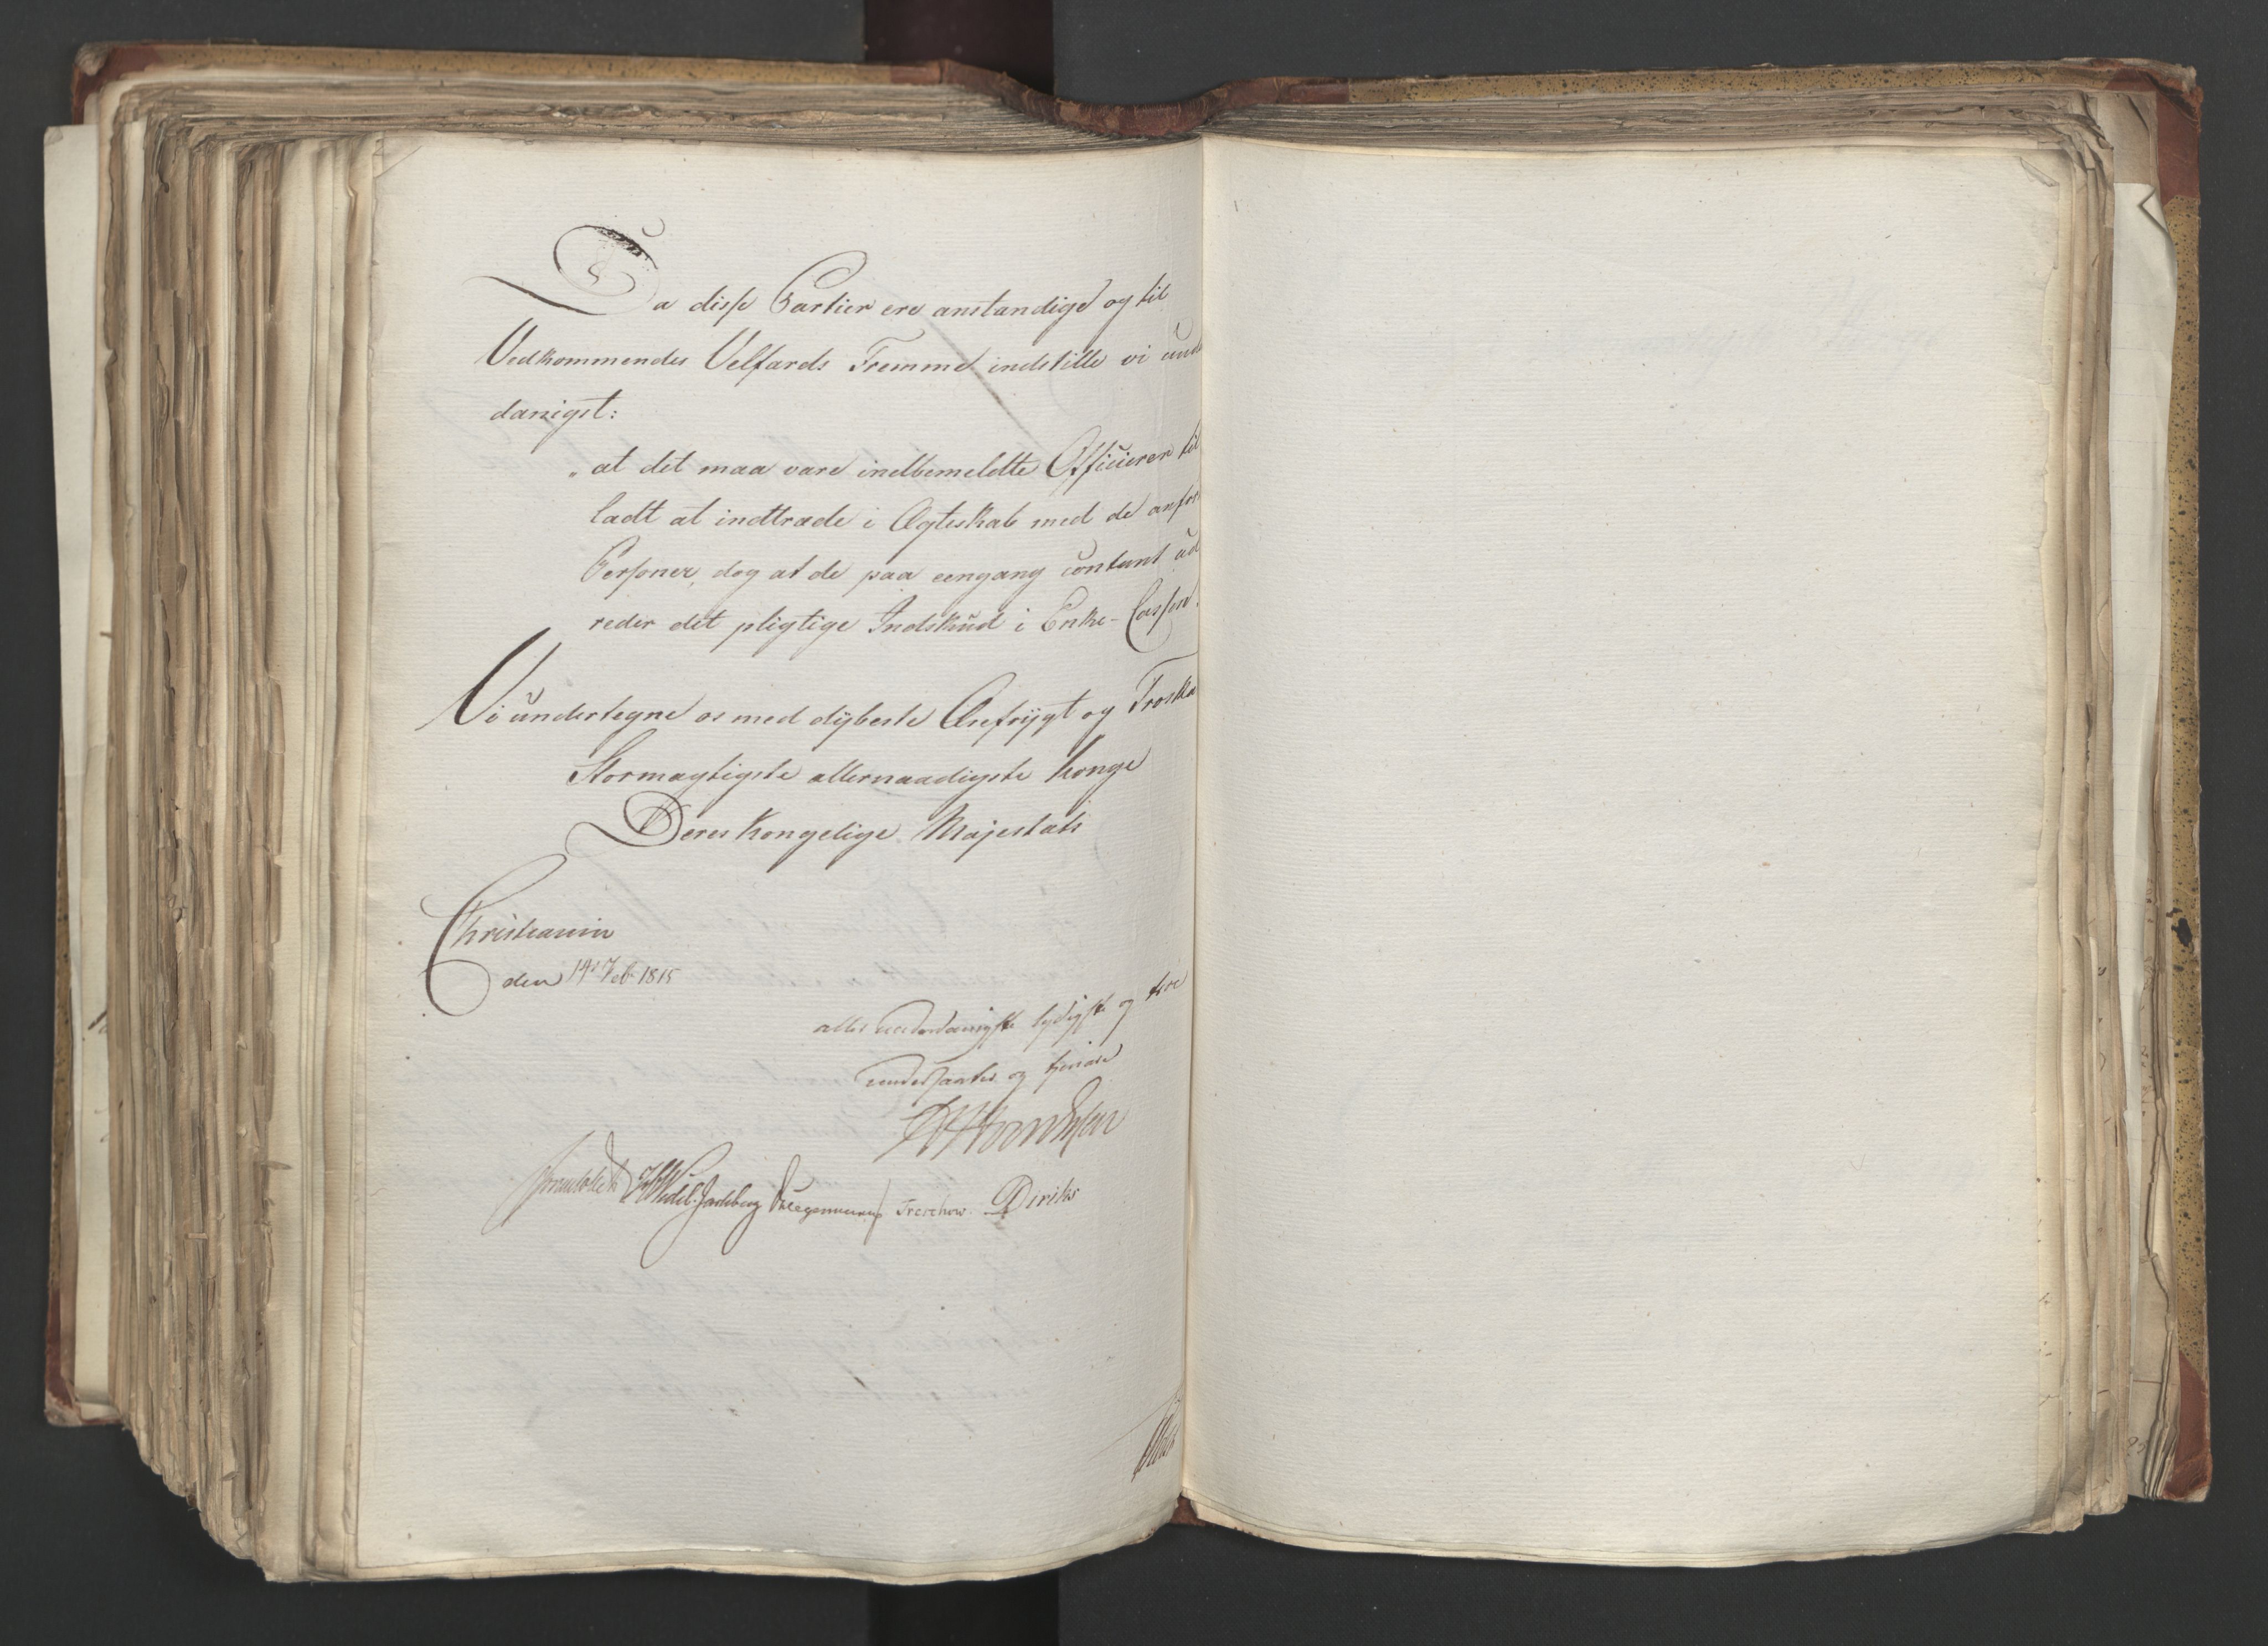 Da disse Partier ere anstændige og til
Vedkommendes Velfærds Fremme indstille vi unde
danigst:
„at det maa være indbemeldte Officierer til
ladt at indtræde i Ægteskab med de anfør
Personer, dog at de paa eengang contant ud
reder det pligtige Indskud i Enke-Cassen.
Vi undertegne os med dybeste Ærefrygt og Troska
Stormægtigste allernaadigste Konge
Deres Kongelige Majestæts
Christiania
den 14de Feb 1815
allerunderdanigste lydigste og troe
undersaatter og tjenere
Sommerhielm Wedel-Jarlsberg Krogemann Treschow. Diriks